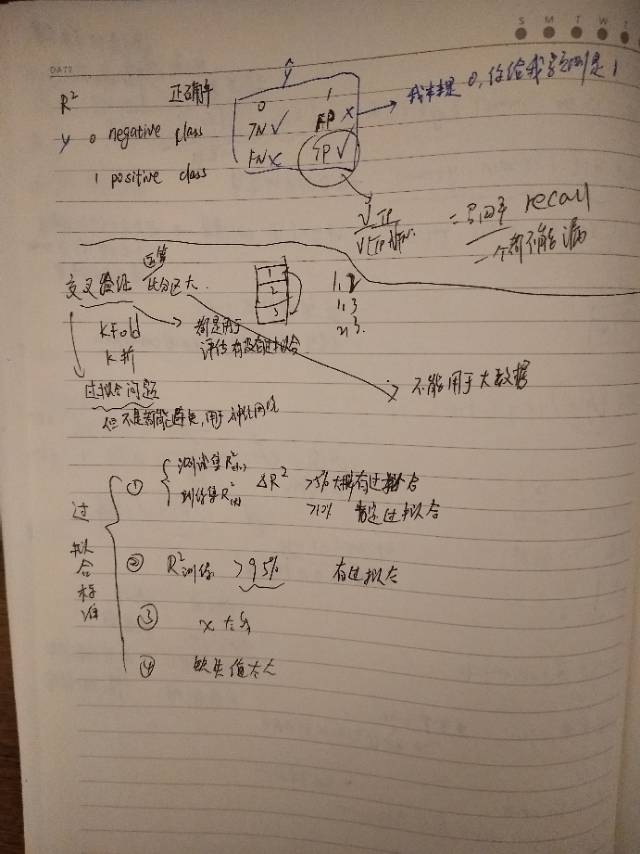 S M T W T
DATE
ŷ
R² 正确率
0 1 我本来是 0, 你给我预测是 1
y 0 negative class TN✓ FP×
1 positive class FN× TP✓
√TP
√(TP+FN) = 召回率 recall
一个都不能漏
运算
交叉验证 太大 1 1,2
2 1,3
3 2,3
KFold 都是用于
K折 评估有没有过拟合
过拟合问题 不能用于大数据
但不是都能避免,用于
① 测试集R²
训练集R² ΔR² >5% 大概有过拟合
>10% 肯定过拟合
过拟合标准
② R²训练 >95% 有过拟合
③ x 太多
④ 缺失值太大